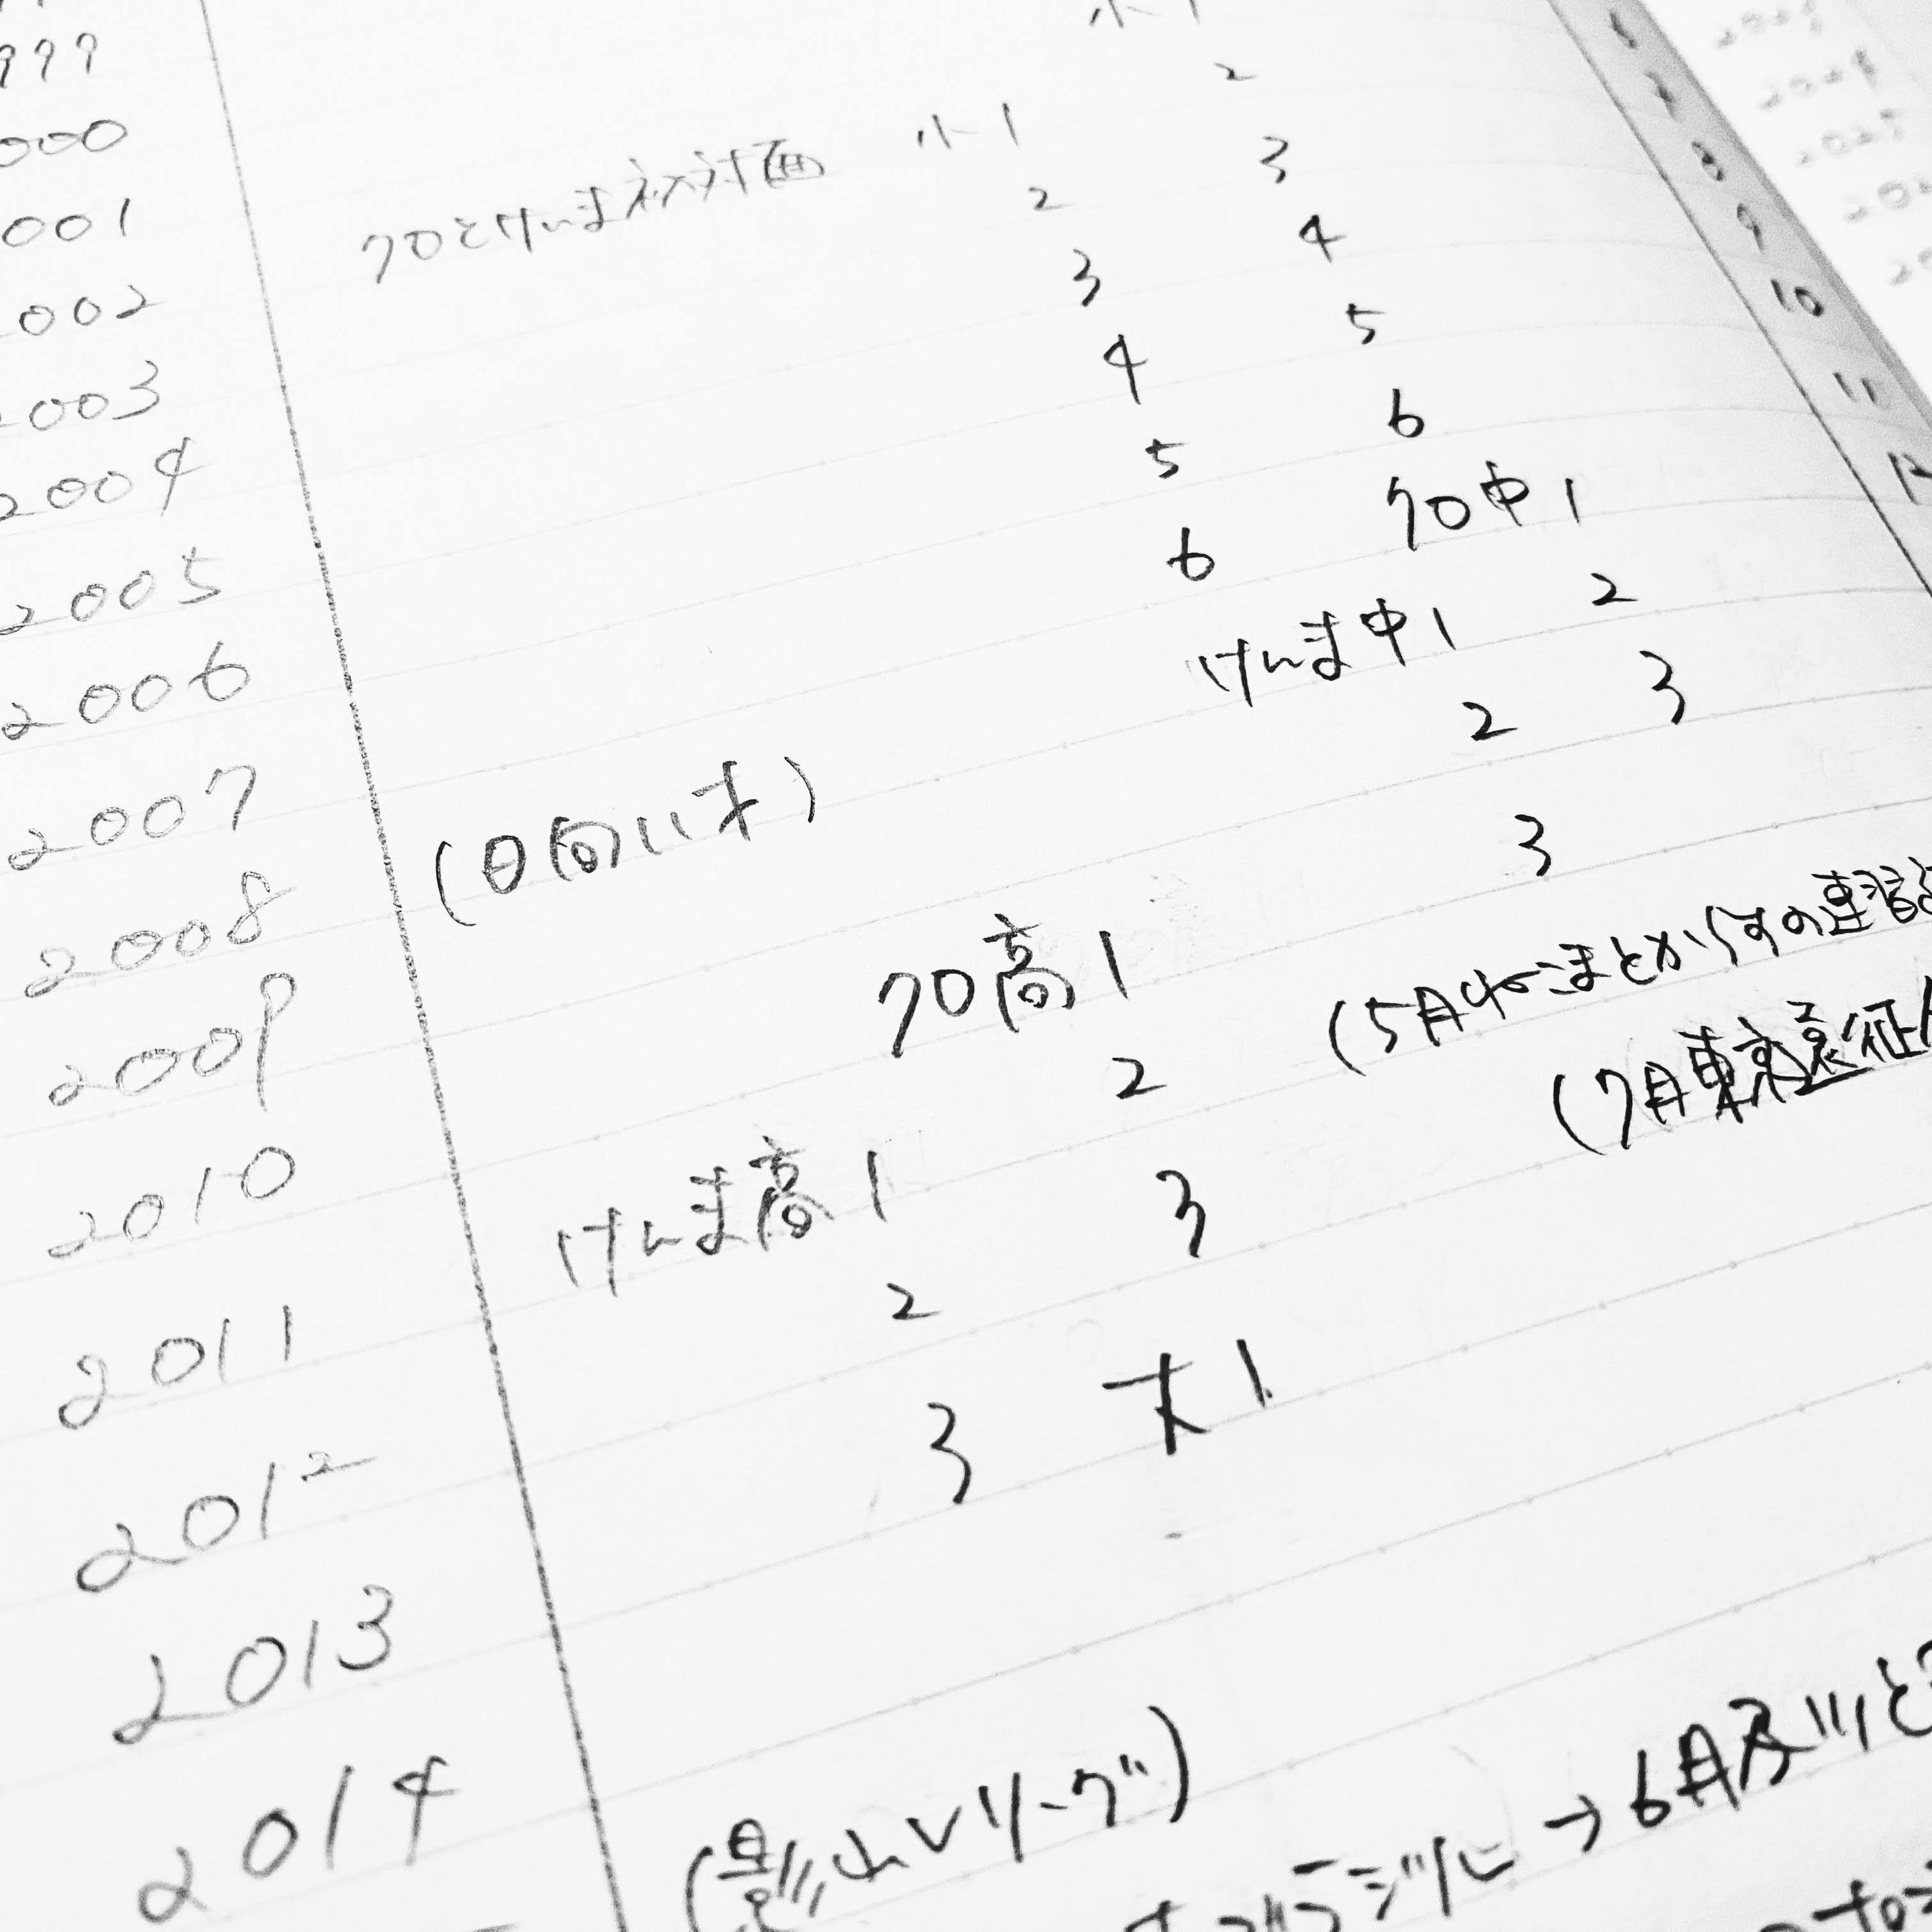 999
000
001
002
2003
2004
2005
2006
2007
2008
2009
2010
2011
2012
2013
2014
小1
2
3
4
5
6
クロ中1
2
3
クロとけんま初対面 小1
2
3
4
5
6
けんま中1
2
3
(日向11才)
クロ高1
2
3
大1
けんま高1
2
3
(5月ねことからすの
(7月東京遠征
(影山Vリーグ)
ブラジルに → 6月及川と
6
7
8
9
10
11
12